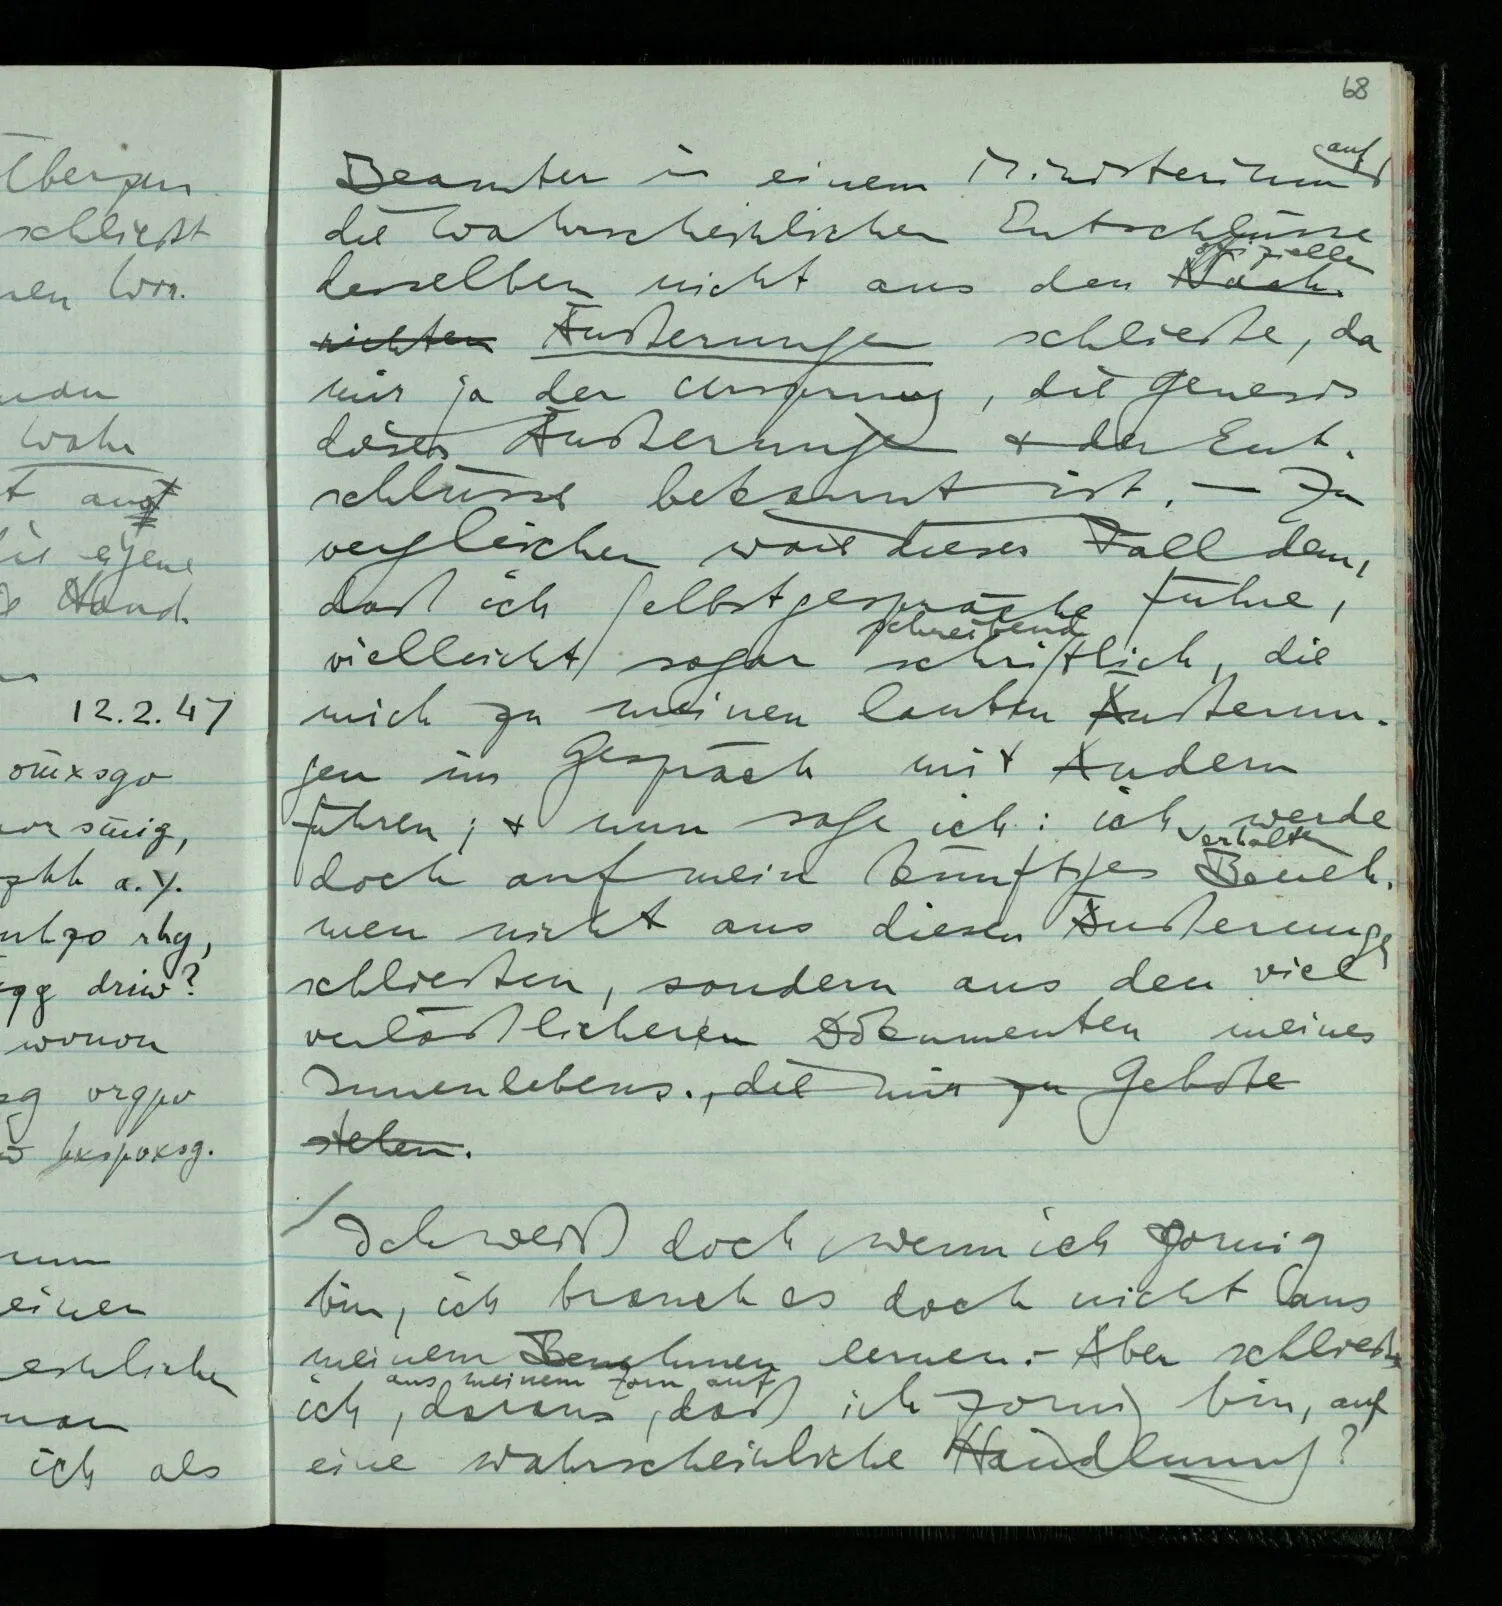 68
Beamter in einem Ministerium auf
die wahrscheinlichen Entschlüsse
desselben nicht aus den offiziellen Nach-
richten Äußerungen schließe, da
mir ja der Ursprung, die Genesis
dieser Äußerungen & der Ent-
schlüsse bekannt ist. — Zu
vergleichen wäre dieser Fall dem,
daß ich Selbstgespräche führe,
vielleicht sogar schreibend schriftlich, die
mich zu meinen lauten Äußerun-
gen im Gespräch mit Andern
führen; & nun sage ich: ich werde
doch auf mein künftiges Verhalten Beneh-
men nicht aus diesen Äußerungen
schließen, sondern aus den viel
verläßlicheren Dokumenten meines
Innenlebens., die mir zu Gebote
stehen.
/ Ich weiß doch, wenn ich zornig
bin, ich brauch es doch nicht aus
meinem Benehmen lernen. – Aber schließe
ich, aus meinem Zorn auf daraus, daß ich zornig bin, auf
eine wahrscheinliche Handlung?
schließt
wahr
die eigene
Hand-
12.2.47
wonon
einen
ich als